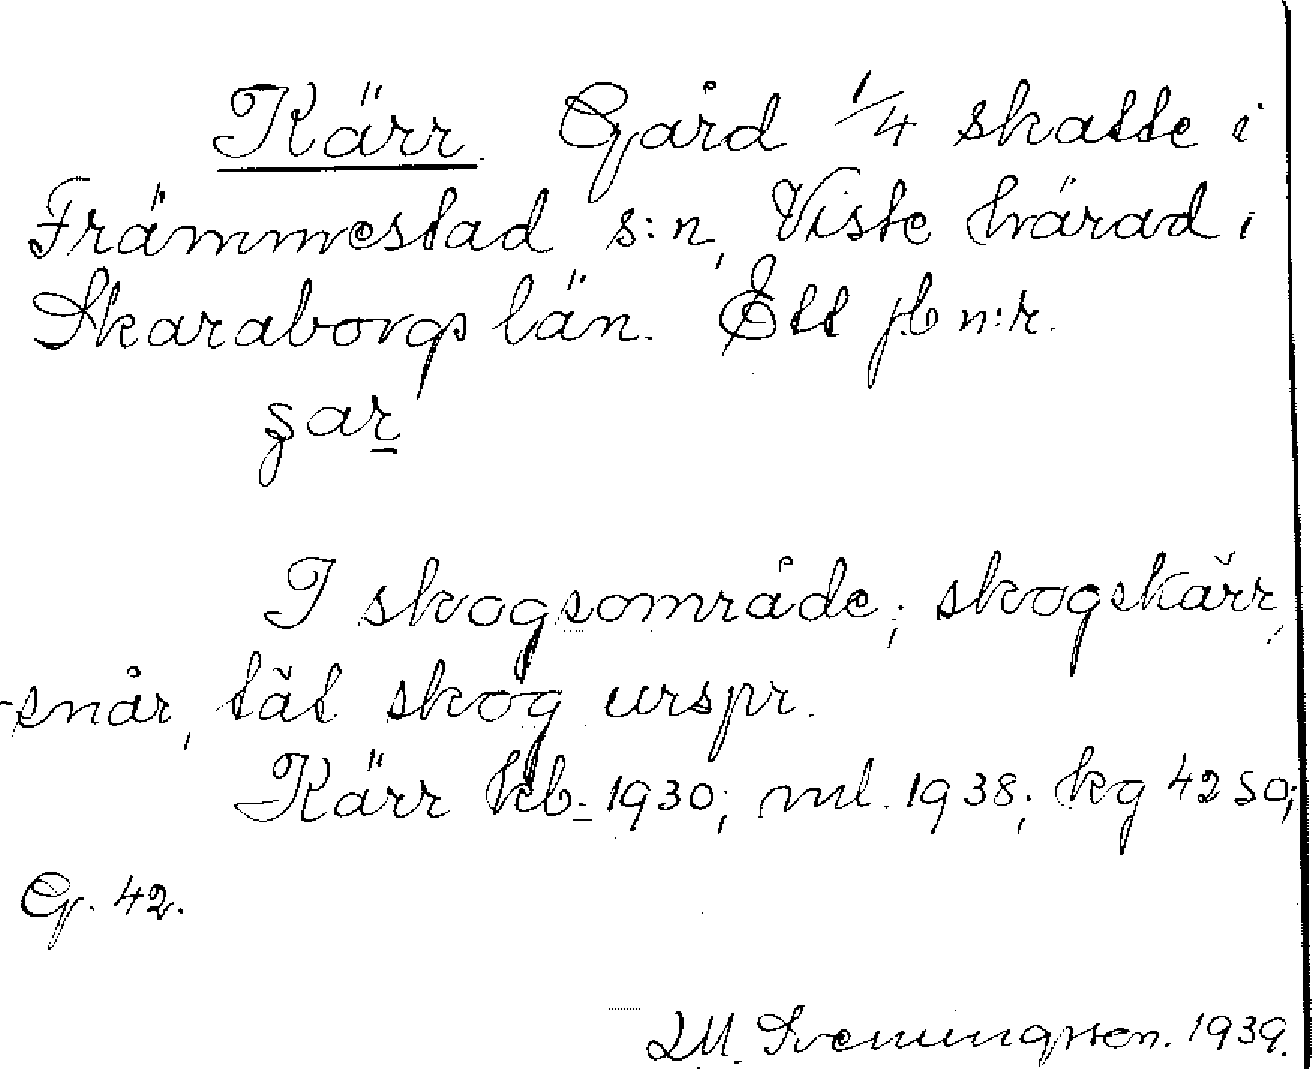 Kärr. Gård 1/4 skatte i
Främmestad s:n, Viste härad i
Skaraborgs län. Ett jb n:r.
ʒar
I skogsområde; skogskärr,
-snår, tät skog urspr.
Kärr kb. 1930; ml. 1938; kg 4250;
G. 42.
Sveningsson. 1939.